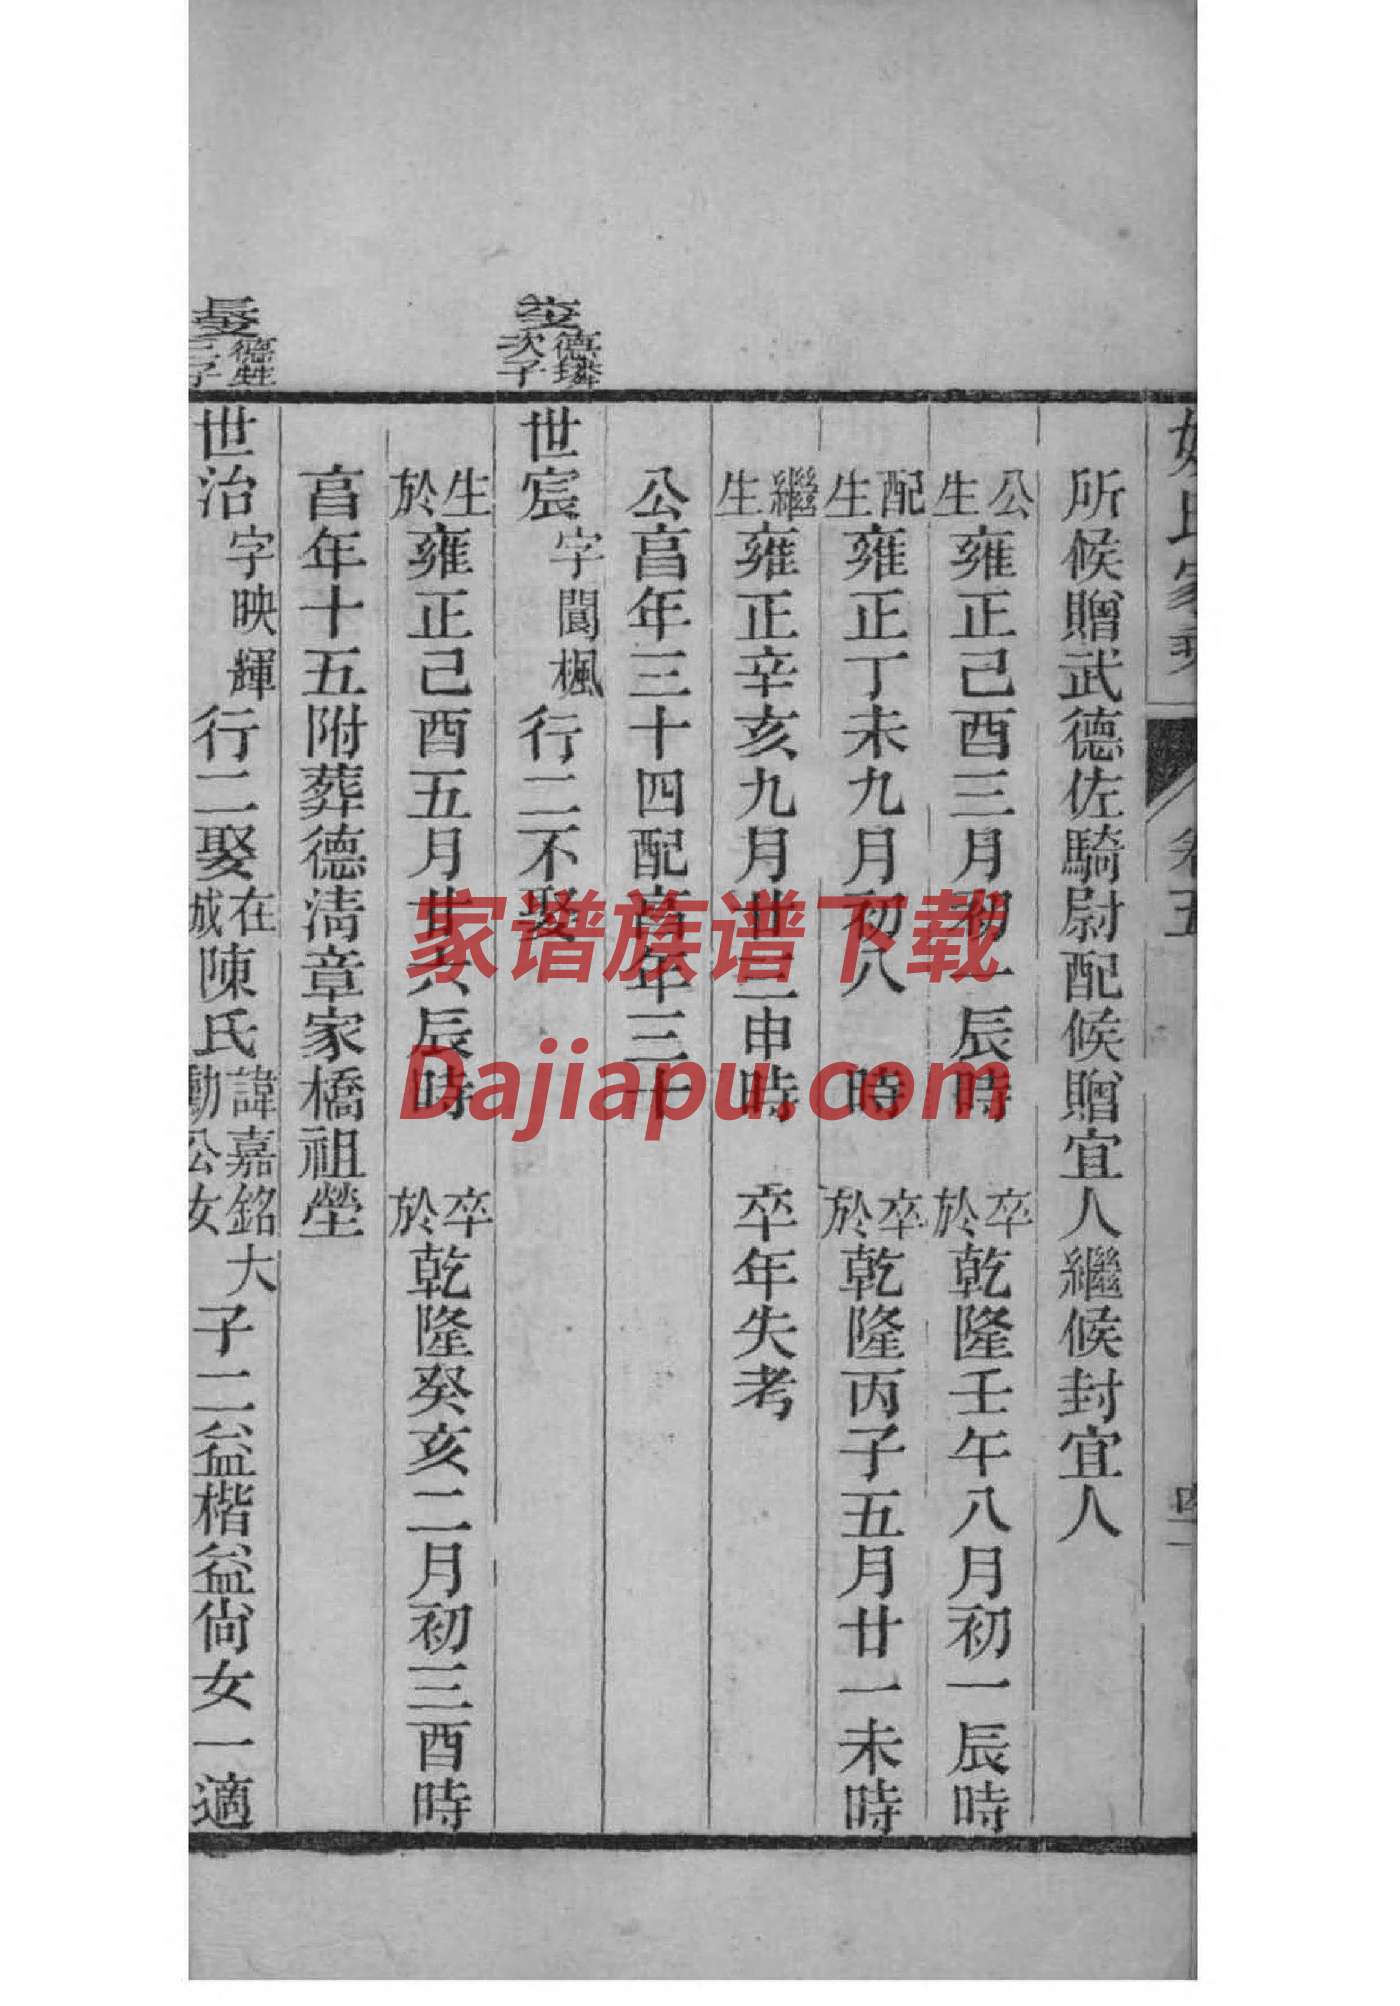 氏家乘
卷五
所候贈武德佐騎尉配候贈宜人繼候封宜人
公生雍正己酉三月初一辰時 卒於乾隆壬午八月初一辰時
配生雍正丁未九月初八 時 卒於乾隆丙子五月廿一未時
繼生雍正辛亥九月廿三申時 卒年失考
公亯年三十四配亯年三十
德璘次子
世宸字閬楓行二不娶
生於雍正己酉五月廿六辰時 卒於乾隆癸亥二月初三酉時
亯年十五附葬德清章家橋祖塋
長
世治字映輝行二娶在城陳氏諱嘉銘大勳公女子二益楷益尙女一適
家谱族谱下载
Dajiapu.com